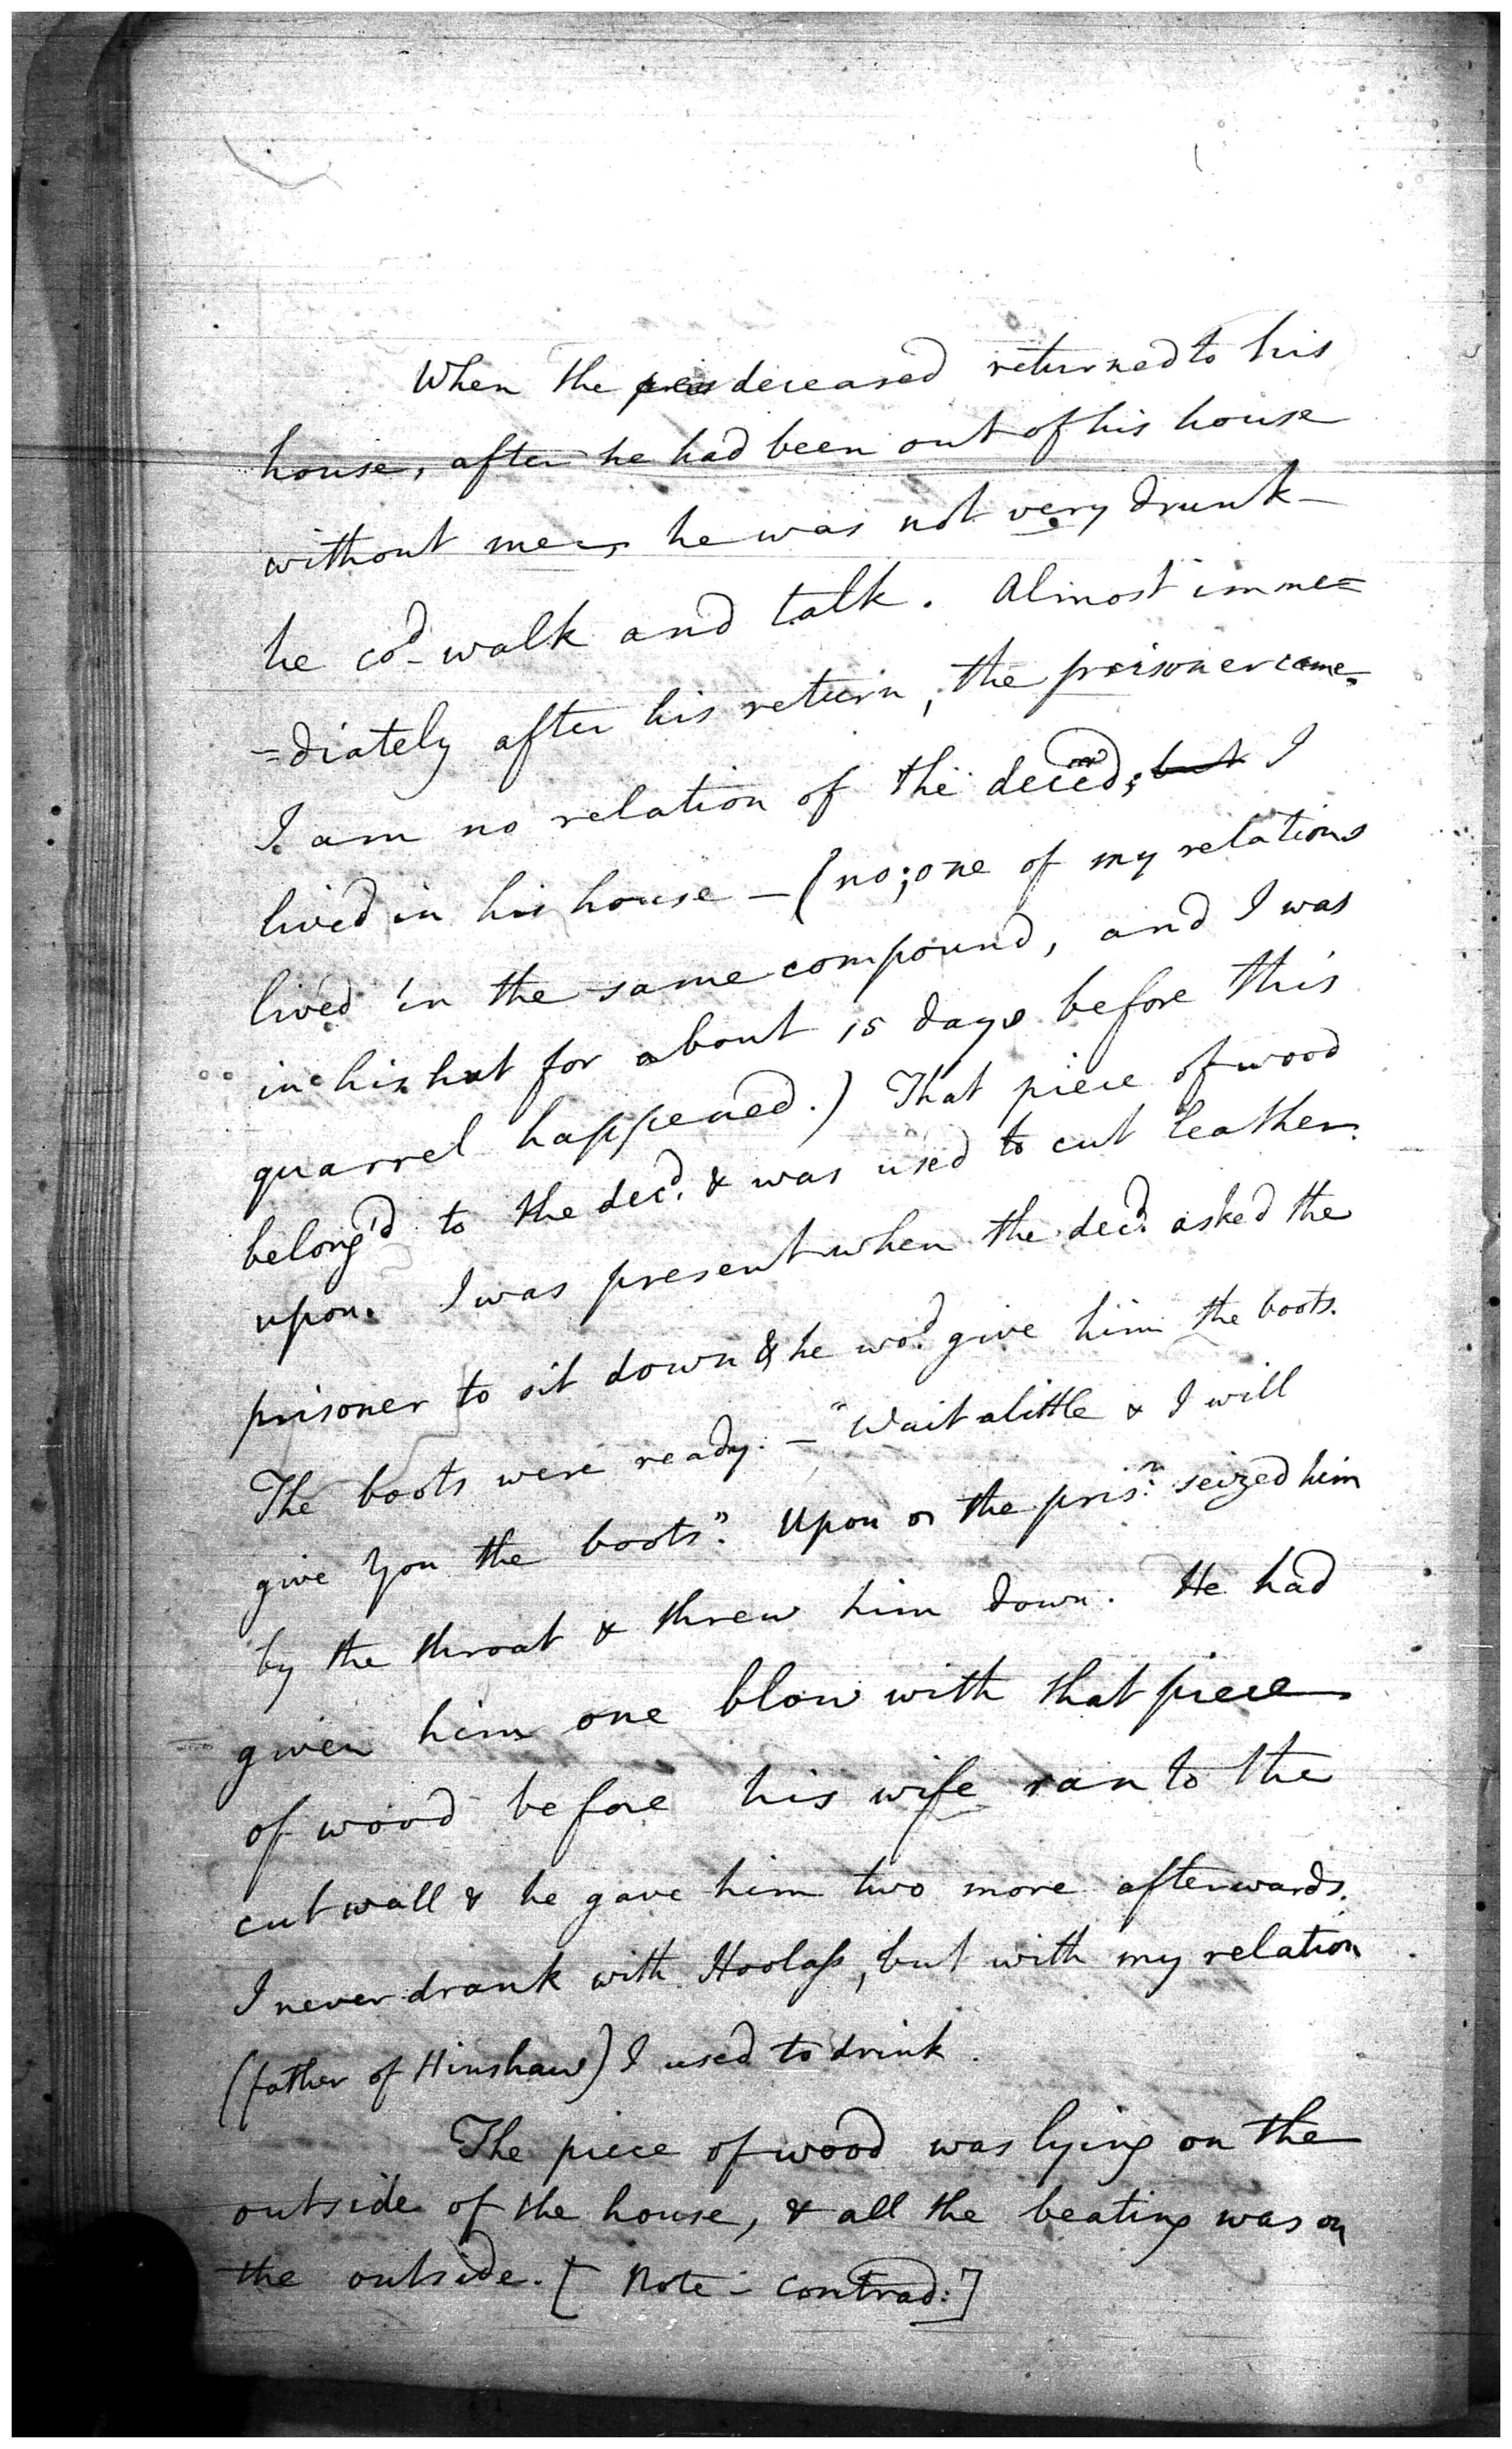 When the deceased returned to his
house, after he had been out of his house
without me he was not very drunk -
he cod walk and talk. Almost imme=
=diately after his return, the prisoner came.
I am no relation of the deced; but I
lived in his house - (no; one of my relations
lived in the same compound, and I was
in his hut for about 15 days before this
quarrel happened.) That piece of wood
belong'd to the decd. & was used to cut leather
upon. I was present when the decd. asked the
prisoner to sit down & he wod. give him the boots.
The boots were ready. - "Wait a little & I will
give you the boots". Upon the prisr. seized him
by the throat & threw him down. He had
given him one blow with that piece
of wood before his wife ran to the
cutwall & he gave him two more afterwards.
I never drank with Hoolass, but with my relation
(father of Hinshaw) I used to drink.
The piece of wood was lying on the
outside of the house, & all the beating was on
the outside. [Note - contrad:]